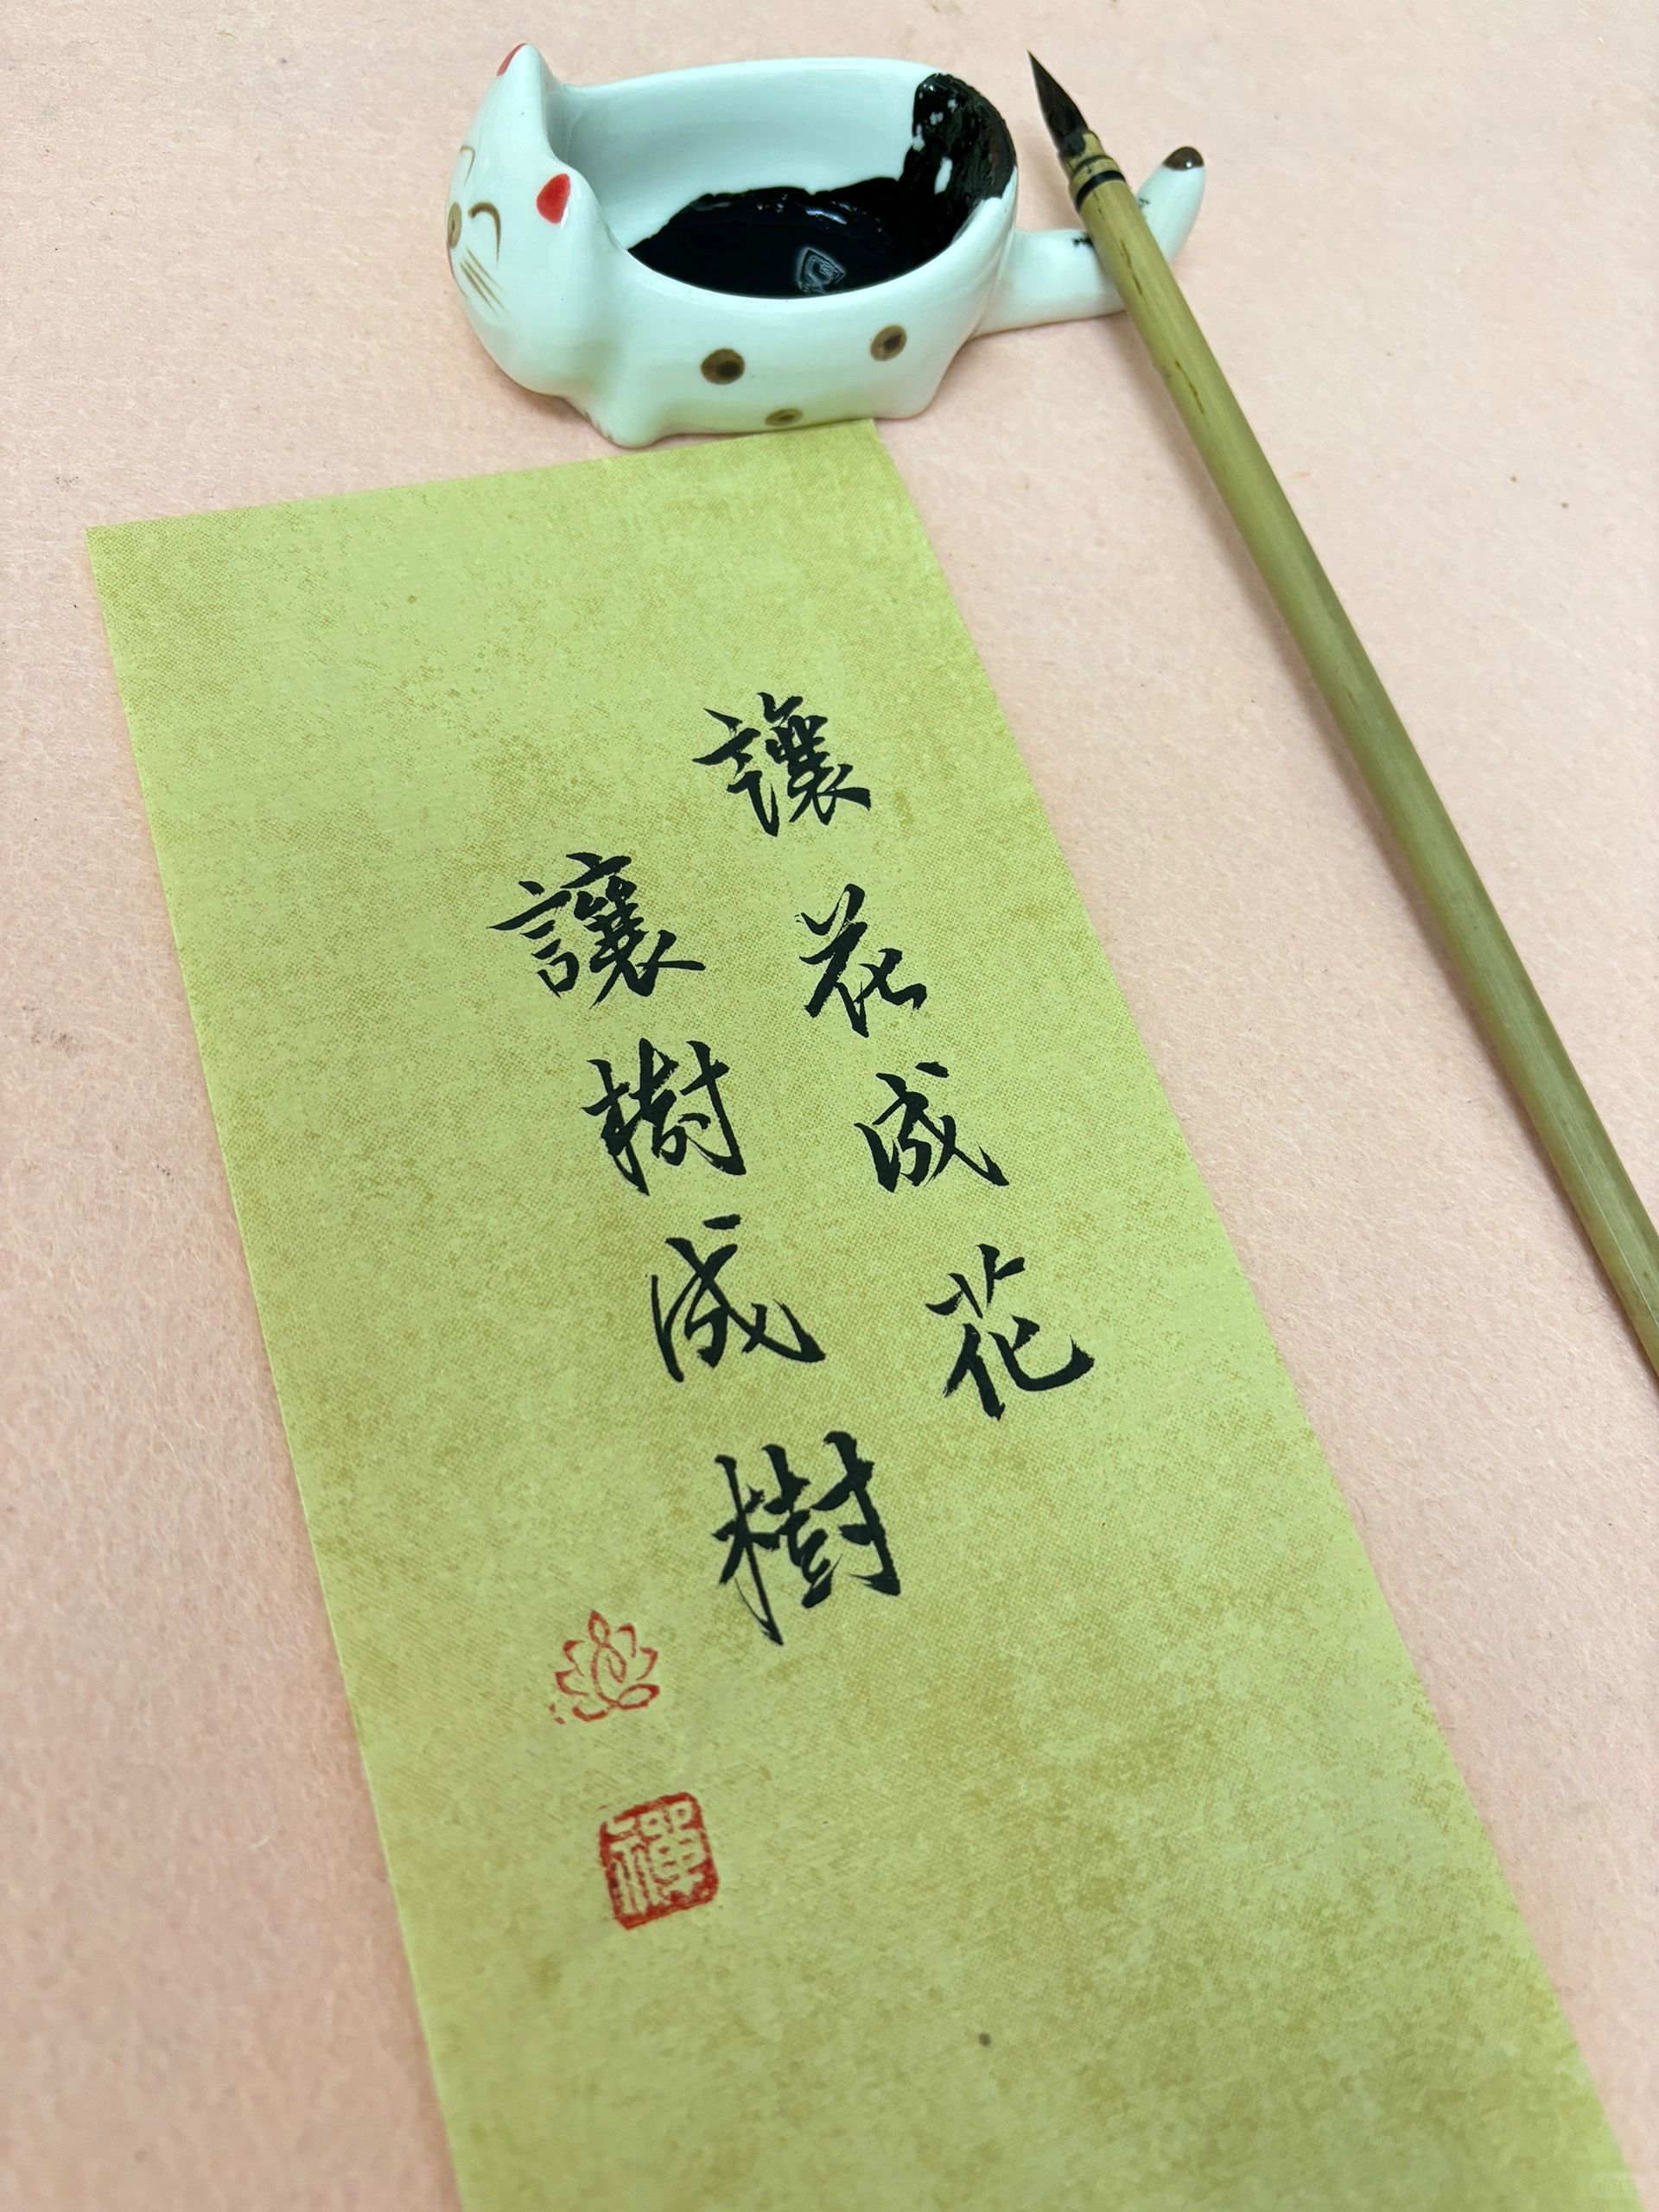 讓花成花
讓樹成樹
禪